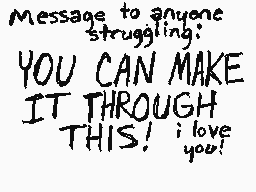 Message to anyone
struggling:
YOU CAN MAKE
IT THROUGH
THIS! i love
you!